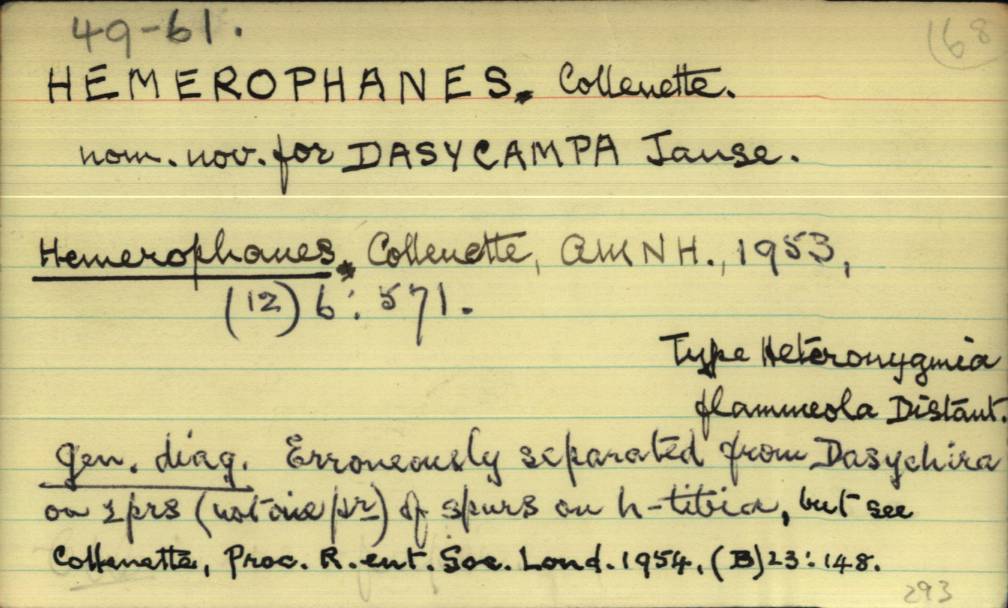 49-61.
168
HEMEROPHANES. Collenette.
nom. nov. for DASYCAMPA Janse.
Hemerophanes, Collenette, AMNH., 1953,
(12) 6: 571.
Type Heteronygmia
flammeola Distant.
Gen. diag. Erroneously separated from Dasychira
on 2 prs (not one pr) of spurs on h-tibia, but see
Collenette, Proc. R. ent. Soc. Lond. 1954, (B) 23: 148.
293